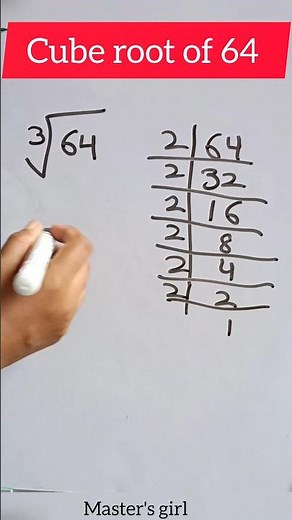 Cube root of 64
3√64
2|64
2|32
2|16
2|8
2|4
2|2
1
Master's girl